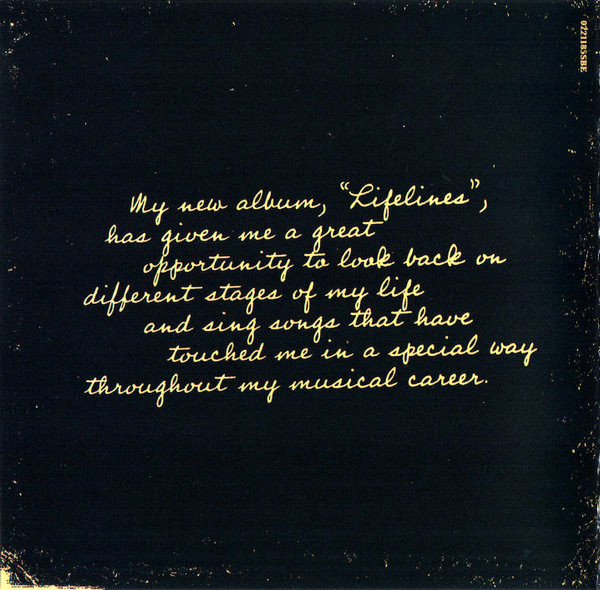 0221185SBE
My new album, "Lifelines",
has given me a great
opportunity to look back on
different stages of my life
and sing songs that have
touched me in a special way
throughout my musical career.